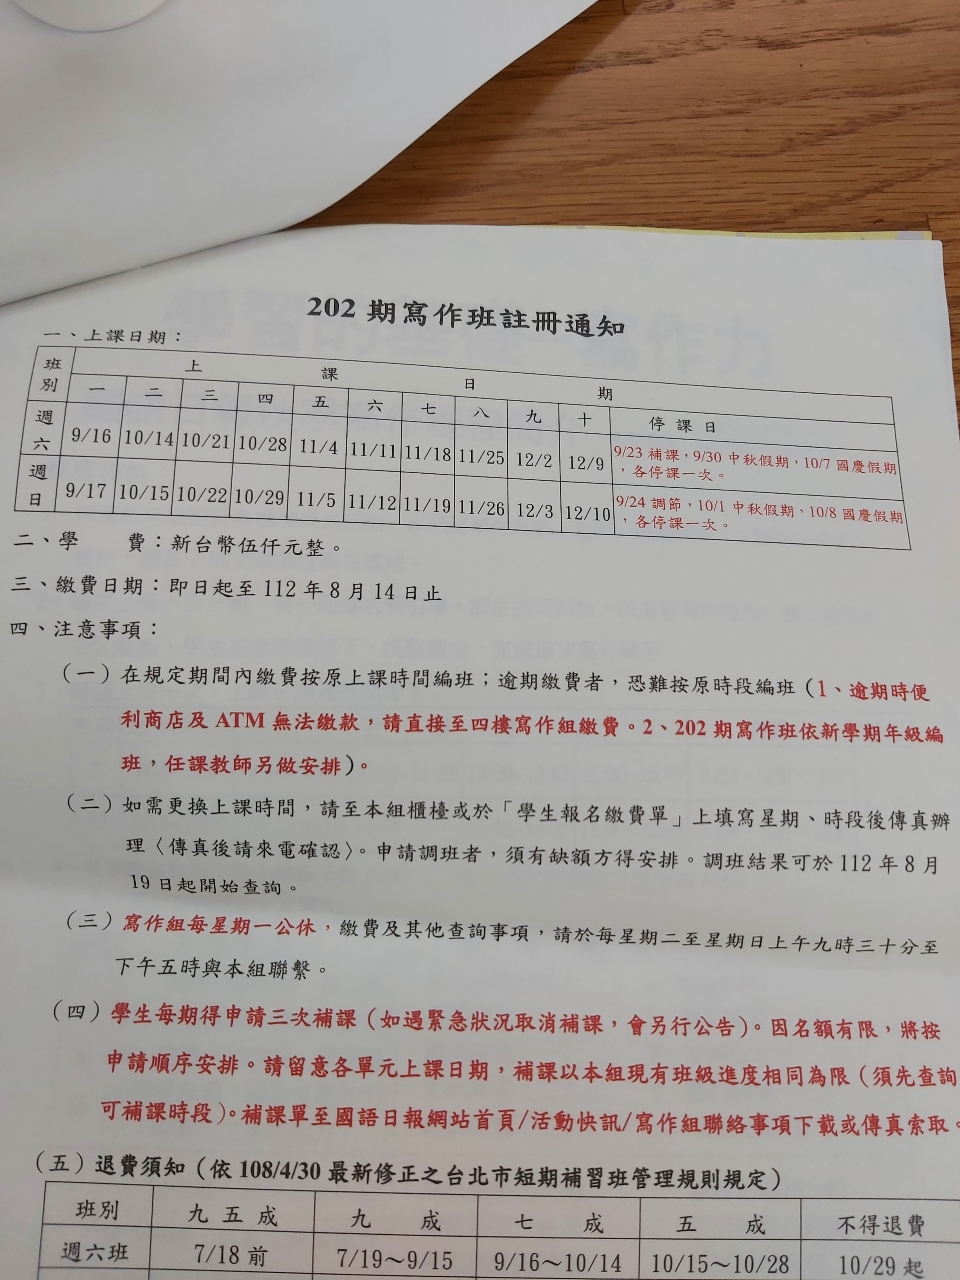 202 期寫作班註冊通知
一、上課日期：
班別 上 課 日 期
一 二 三 四 五 六 七 八 九 十 停 課 日
週六 9/16 10/14 10/21 10/28 11/4 11/11 11/18 11/25 12/2 12/9 9/23 補課，9/30 中秋假期，10/7 國慶假期
，各停課一次。
週日 9/17 10/15 10/22 10/29 11/5 11/12 11/19 11/26 12/3 12/10 9/24 調節，10/1 中秋假期，10/8 國慶假期
，各停課一次。
二、學 費：新台幣伍仟元整。
三、繳費日期：即日起至 112 年 8 月 14 日止
四、注意事項：
（一）在規定期間內繳費按原上課時間編班；逾期繳費者，恐難按原時段編班（1、逾期時便
利商店及 ATM 無法繳款，請直接至四樓寫作組繳費。2、202 期寫作班依新學期年級編
班，任課教師另做安排）。
（二）如需更換上課時間，請至本組櫃檯或於「學生報名繳費單」上填寫星期、時段後傳真辦
理〈傳真後請來電確認〉。申請調班者，須有缺額方得安排。調班結果可於 112 年 8 月
19 日起開始查詢。
（三）寫作組每星期一公休，繳費及其他查詢事項，請於每星期二至星期日上午九時三十分至
下午五時與本組聯繫。
（四）學生每期得申請三次補課（如遇緊急狀況取消補課，會另行公告）。因名額有限，將按
申請順序安排。請留意各單元上課日期，補課以本組現有班級進度相同為限（須先查詢
可補課時段）。補課單至國語日報網站首頁/活動快訊/寫作組聯絡事項下載或傳真索取。
（五）退費須知（依 108/4/30 最新修正之台北市短期補習班管理規則規定）
班別 九 五 成 九 成 七 成 五 成 不得退費
週六班 7/18 前 7/19～9/15 9/16～10/14 10/15～10/28 10/29 起